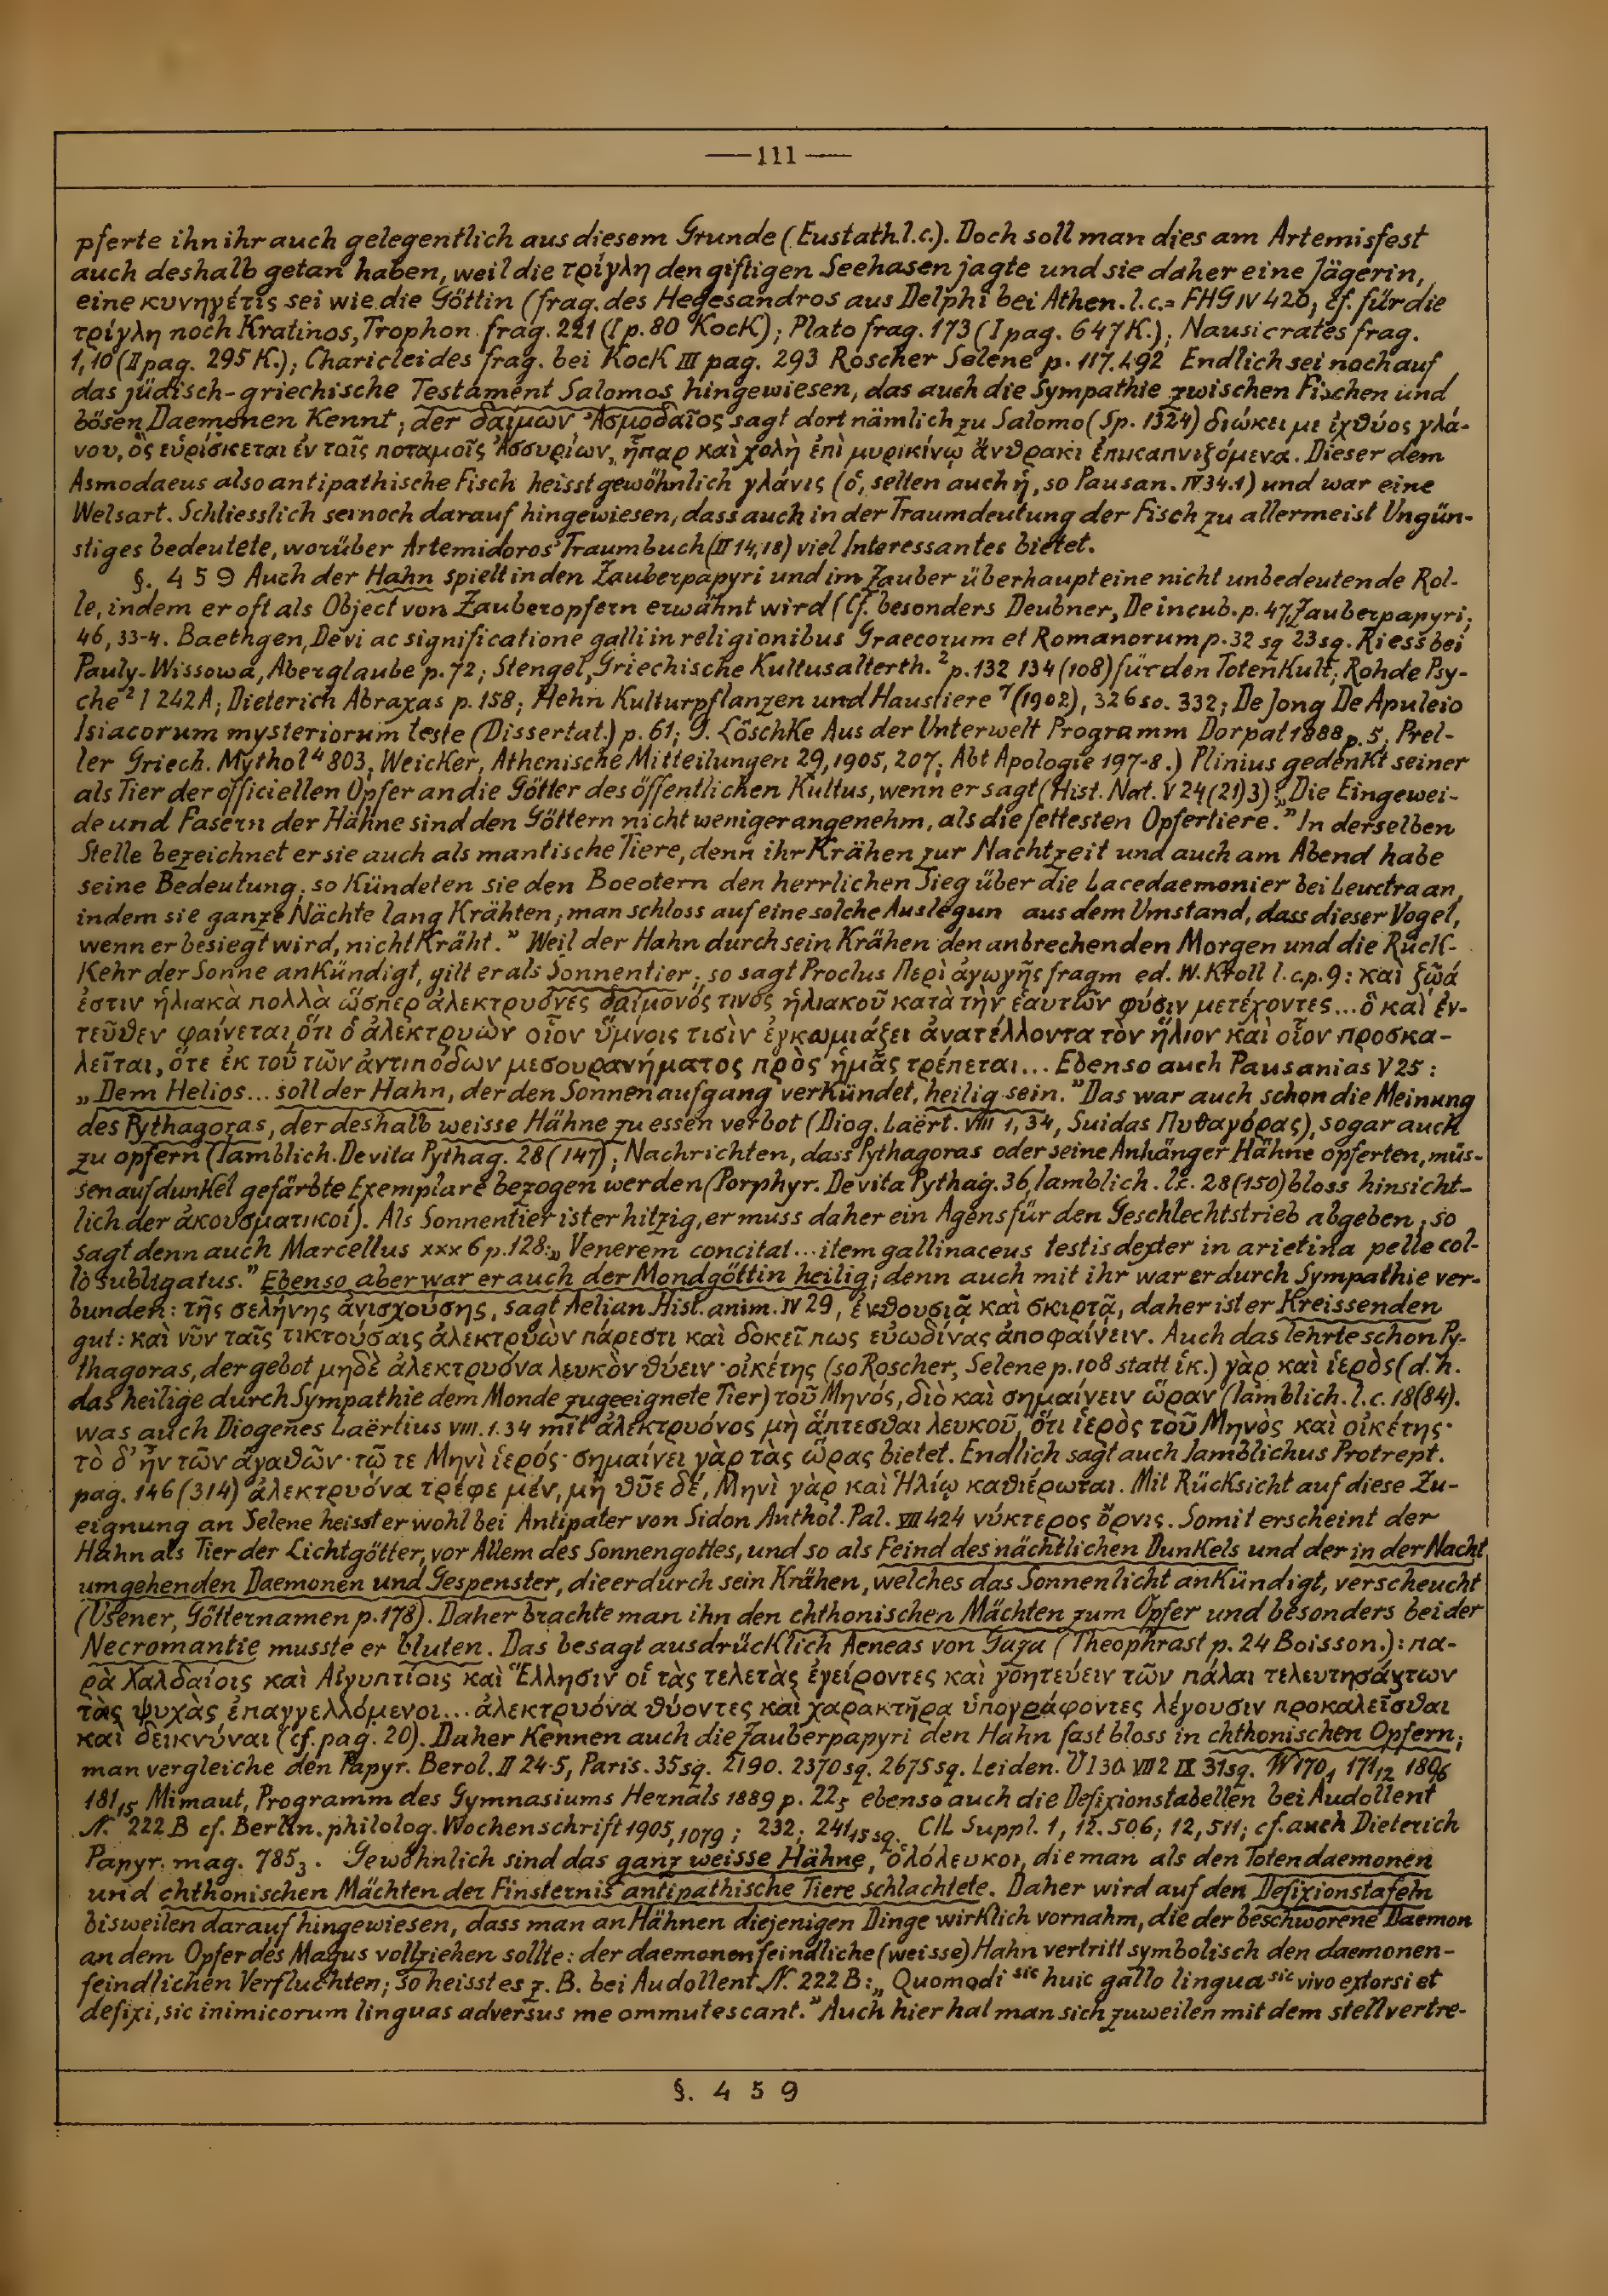 —111—
pferte ihn ihr auch gelegentlich aus diesem Grunde (Eustath. l. c.). Doch soll man dies am Artemisfest
auch deshalb getan haben, weil die τρίγλη den giftigen Seehasen jagte und sie daher eine Jägerin,
eine κυνηγέτις sei wie die Göttin (frag. des Hegesandros aus Delphi bei Athen. l.c.= FHG IV 420; cf. für die
τρίγλη noch Kratinos, Trophon. frag. 221 (I p. 80 Kock); Plato frag. 173 (I pag. 647 K.); Nausicrates frag.
1, 10 (II pag. 295 K.); Charicleides frag. bei Kock III pag. 293 Roscher Selene p. 117.492 Endlich sei noch auf
das jüdisch-griechische Testament Salomos hingewiesen, das auch die Sympathie zwischen Fischen und
bösen Daemonen kennt; der δαίμων Ἀσμοδαῖος sagt dort nämlich zu Salomo (Sp. 1324) διώκει με ἰχθύος γλά-
νου, ὃς εὑρίσκεται ἐν ταῖς ποταμοῖς Ἀσσυρίων, ἧπαρ καὶ χολὴ ἐπὶ μυρικίνῳ ἄνθρακι ἐπικαπνιζόμενα. Dieser dem
Asmodaeus also antipathische Fisch heisst gewöhnlich γλάνις (ὁ, selten auch ἡ, so Pausan. IV 34.1) und war eine
Welsart. Schliesslich sei noch darauf hingewiesen, dass auch in der Traumdeutung der Fisch zu allermeist Ungün-
stiges bedeutete, worüber Artemidoros' Traumbuch (II 14, 18) viel Interessantes bietet.
§. 459 Auch der Hahn spielt in den Zauberpapyri und im Zauber überhaupt eine nicht unbedeutende Rol-
le, indem er oft als Object von Zauberopfern erwähnt wird (Cf. besonders Deubner, De incub. p. 47, Zauberpapyri;
46, 33-4. Baethgen, De vi ac significatione galli in religionibus Graecorum et Romanorum p. 32 sq 23 sq. Riess bei
Pauly-Wissowa, Aberglaube p. 72; Stengel, Griechische Kultusalterth.² p. 132 134 (108) für den Totenkult; Rohde Psy-
che² I 242 A; Dieterich Abraxas p. 158; Hehn Kulturpflanzen und Haustiere ⁷ (1902), 326 so. 332; De Jong De Apuleio
Isiacorum mysteriorum teste (Dissertat.) p. 61; G. Löschke Aus der Unterwelt Programm Dorpat 1888 p. 5; Prel-
ler Griech. Mythol⁴ 803; Weicker, Athenische Mitteilungen 29, 1905, 207; Abt Apologie 197-8.) Plinius gedenkt seiner
als Tier der officiellen Opfer an die Götter des öffentlichen Kultus, wenn er sagt (Hist. Nat. V 24 (21) 3): „Die Eingewei-
de und Fasern der Hähne sind den Göttern nicht weniger angenehm, als die fettesten Opfertiere.” In derselben
Stelle bezeichnet er sie auch als mantische Tiere, denn ihr Krähen zur Nachtzeit und auch am Abend habe
seine Bedeutung; so kündeten sie den Boeotern den herrlichen Sieg über die Lacedaemonier bei Leuctra an,
indem sie ganze Nächte lang krähten; man schloss auf eine solche Auslegun aus dem Umstand, dass dieser Vogel,
wenn er besiegt wird, nicht kräht.” Weil der Hahn durch sein Krähen den anbrechenden Morgen und die Rück-
kehr der Sonne ankündigt, gilt er als Sonnentier; so sagt Proclus Περὶ ἀγωγῆς fragm ed. W. Kroll l. c. p. 9: καὶ ζῷά
ἐστιν ἡλιακὰ πολλὰ ὥσπερ ἀλεκτρυόνες δαίμονός τινος ἡλιακοῦ κατὰ τὴν ἑαυτῶν φύσιν μετέχοντες... ὃ καὶ ἐν-
τεῦθεν φαίνεται, ὅτι ὁ ἀλεκτρυὼν οἷον ὕμνοις τισὶν ἐγκωμιάζει ἀνατέλλοντα τὸν ἥλιον καὶ οἷον προσκα-
λεῖται, ὅτε ἐκ τοῦ τῶν ἀντιπόδων μεσουρανήματος πρὸς ἡμᾶς τρέπεται... Ebenso auch Pausanias V 25:
„Dem Helios... soll der Hahn, der den Sonnenaufgang verkündet, heilig sein.” Das war auch schon die Meinung
des Pythagoras, der deshalb weisse Hähne zu essen verbot (Diog. Laërt. VIII 1, 34, Suidas Πυθαγόρας), sogar auch
zu opfern (Iamblich. De vita Pythag. 28 (147); Nachrichten, dass Pythagoras oder seine Anhänger Hähne opferten, müs-
sen auf dunkel gefärbte Exemplare bezogen werden (Porphyr. De vita Pythag. 36, Iamblich. l.c. 28 (150) bloss hinsicht-
lich der ἀκουσματικοί). Als Sonnentier ist er hitzig, er muss daher ein Agens für den Geschlechtstrieb abgeben; so
sagt denn auch Marcellus xxx 6 p. 128: „Venerem concitat... item gallinaceus testis dexter in arietina pelle col-
lo subligatus.” Ebenso aber war er auch der Mondgöttin heilig; denn auch mit ihr war er durch Sympathie ver-
bunden: τῆς σελήνης ἀνισχούσης, sagt Aelian Hist. anim. IV 29, ἐνθουσιᾷ καὶ σκιρτᾷ, daher ist er Kreissenden
gut: καὶ νῦν ταῖς τικτούσαις ἀλεκτρυὼν πάρεστι καὶ δοκεῖ πως εὐωδίνας ἀποφαίνειν. Auch das lehrte schon Py-
thagoras, der gebot μηδὲ ἀλεκτρυόνα λευκὸν θύειν· οἰκέτης (so Roscher, Selene p. 108 statt ἱκ.) γὰρ καὶ ἱερὸς (d. h.
das heilige durch Sympathie dem Monde zugeeignete Tier) τοῦ Μηνός, διὸ καὶ σημαίνειν ὥραν (Iamblich. l. c. 18 (84).
was auch Diogenes Laërtius VIII. 1. 34 mit ἀλεκτρυόνος μὴ ἅπτεσθαι λευκοῦ, ὅτι ἱερὸς τοῦ Μηνὸς καὶ οἰκέτης·
τὸ δ' ἦν τῶν ἀγαθῶν· τῷ τε Μηνὶ ἱερός· σημαίνει γὰρ τὰς ὥρας bietet. Endlich sagt auch Iamblichus Protrept.
pag. 146 (314) ἀλεκτρυόνα τρέφε μέν, μὴ θῦε δέ, Μηνὶ γὰρ καὶ Ἡλίῳ καθιέρωται. Mit Rücksicht auf diese Zu-
eignung an Selene heisst er wohl bei Antipater von Sidon Anthol. Pal. VII 424 νύκτερος ὄρνις. Somit erscheint der
Hahn als Tier der Lichtgötter, vor Allem des Sonnengottes, und so als Feind des nächtlichen Dunkels und der in der Nacht
umgehenden Daemonen und Gespenster, die er durch sein Krähen, welches das Sonnenlicht ankündigt, verscheucht
(Usener, Götternamen p. 178). Daher brachte man ihn den chthonischen Mächten zum Opfer und besonders bei der
Necromantie musste er bluten. Das besagt ausdrücklich Aeneas von Gaza (Theophrast p. 24 Boisson.): πα-
ρὰ Χαλδαίοις καὶ Αἰγυπτίοις καὶ Ἕλλησιν οἱ τὰς τελετὰς ἐγείροντες καὶ γοητεύειν τῶν πάλαι τελευτησάντων
τὰς ψυχὰς ἐπαγγελλόμενοι... ἀλεκτρυόνα θύοντες καὶ χαρακτῆρα ὑπογράφοντες λέγουσιν προκαλεῖσθαι
καὶ δεικνύναι (cf. pag. 20). Daher kennen auch die Zauberpapyri den Hahn fast bloss in chthonischen Opfern;
man vergleiche den Papyr. Berol. II 24-5, Paris. 35 sq. 2190. 2370 sq. 2675 sq. Leiden. V I 30 VIII 2 IX 31 sq. W 170,1 171,12 180,6
181,15 Mimaut, Programm des Gymnasiums Hernals 1889 p. 22; ebenso auch die Defixionstabellen bei Audollent
N. 222 B cf. Berlin. philolog. Wochenschrift 1905, 1079; 232; 241,15 sq. CIL Suppl. 1, 12.506; 12,511; cf. auch Dieterich
Papyr. mag. 785,3. Gewöhnlich sind das ganz weisse Hähne, ὁλόλευκοι, die man als den Totendaemonen
und chthonischen Mächten der Finsternis antipathische Tiere schlachtete. Daher wird auf den Defixionstafeln
bisweilen darauf hingewiesen, dass man an Hähnen diejenigen Dinge wirklich vornahm, die der beschworene Daemon
an dem Opfer des Magus vollziehen sollte: der daemonenfeindliche (weisse) Hahn vertritt symbolisch den daemonen-
feindlichen Verfluchten; so heisst es z. B. bei Audollent N. 222 B: „Quomodi sic huic gallo lingua sic vivo extorsi et
defixi, sic inimicorum linguas adversus me ommutescant.” Auch hier hat man sich zuweilen mit dem stellvertre-
§. 459